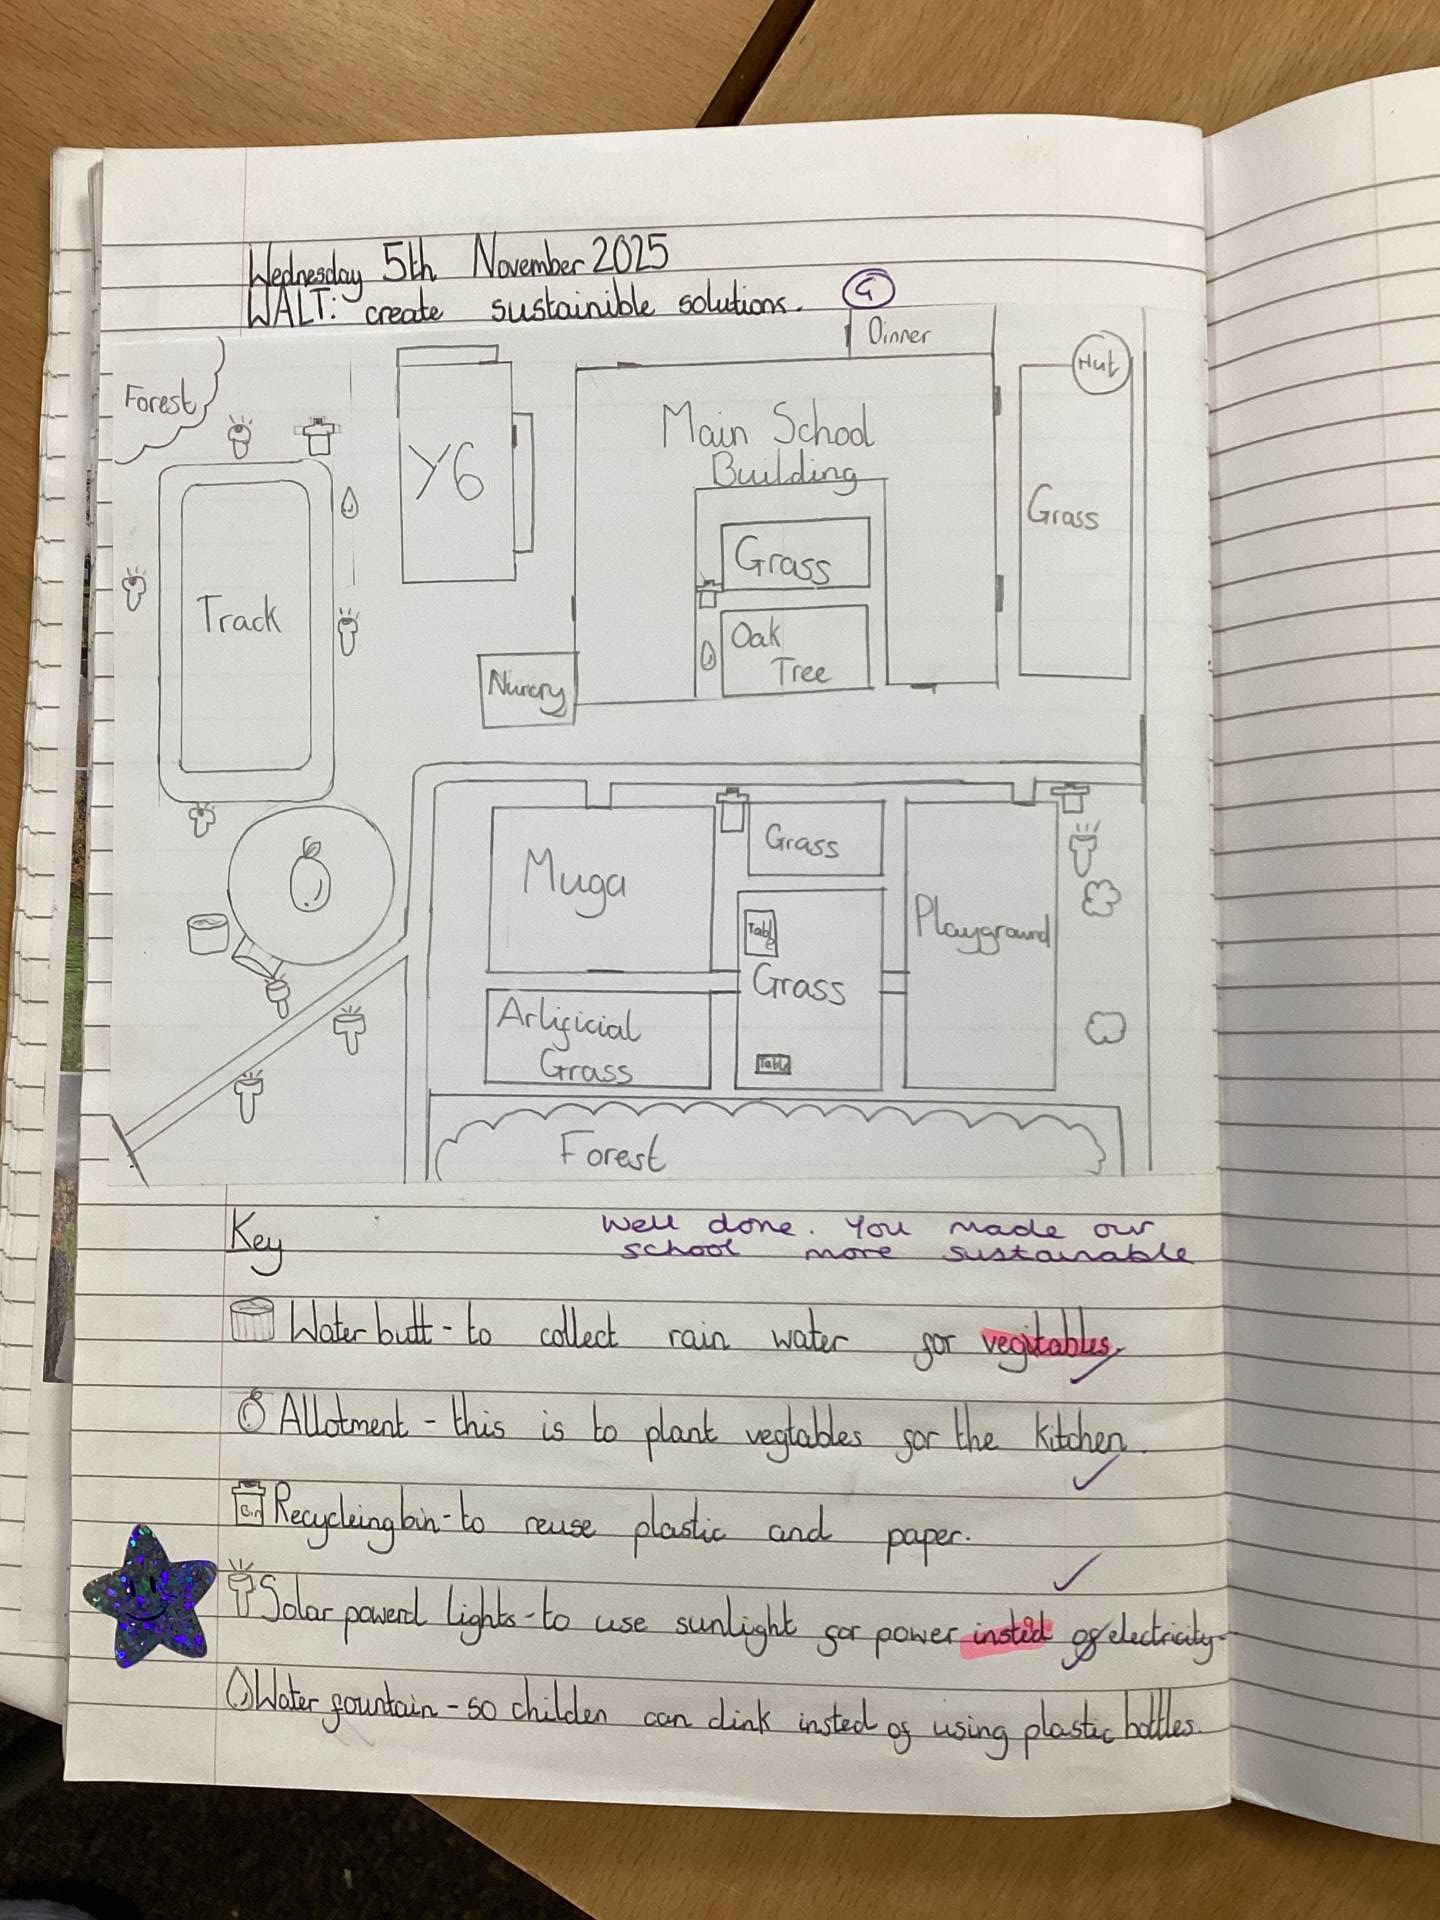 Wednesday 5th November 2025
WALT: create sustainible solutions. G
Dinner
Hut
Forest
Main School
Building
Y6
Grass
Grass
Track
Oak
Tree
Nurcry
Muga
Grass
Playground
Table
Grass
Artificial
Grass
Table
Forest
Key
Well done. You made our
school more sustainable
Water butt - to collect rain water for vegitables.
Allotment - this is to plant vegtables for the kitchen.
Bin Recycleing bin - to reuse plastic and paper.
Solar powerd lights - to use sunlight for power insted of electricity.
Water fountain - so childen can dink insted of using plastic bottles.